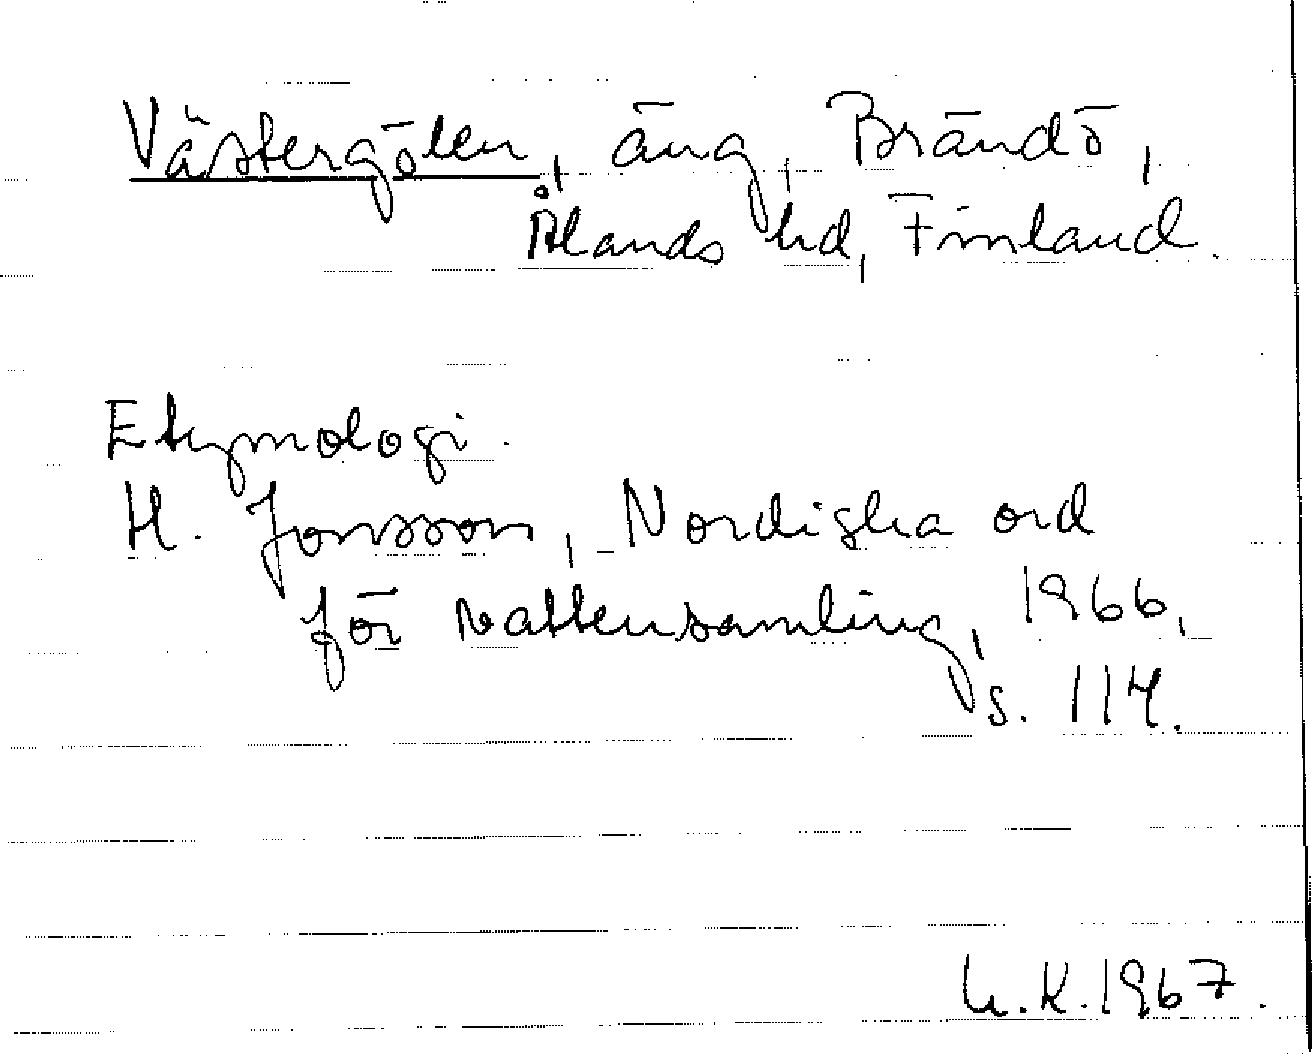 Västergölen, äng, Brändö,
Ålands hd, Finland.
Etymologi.
H. Jonsson, Nordiska ord
för vattensamling, 1966,
s. 114.
U.K. 1967.